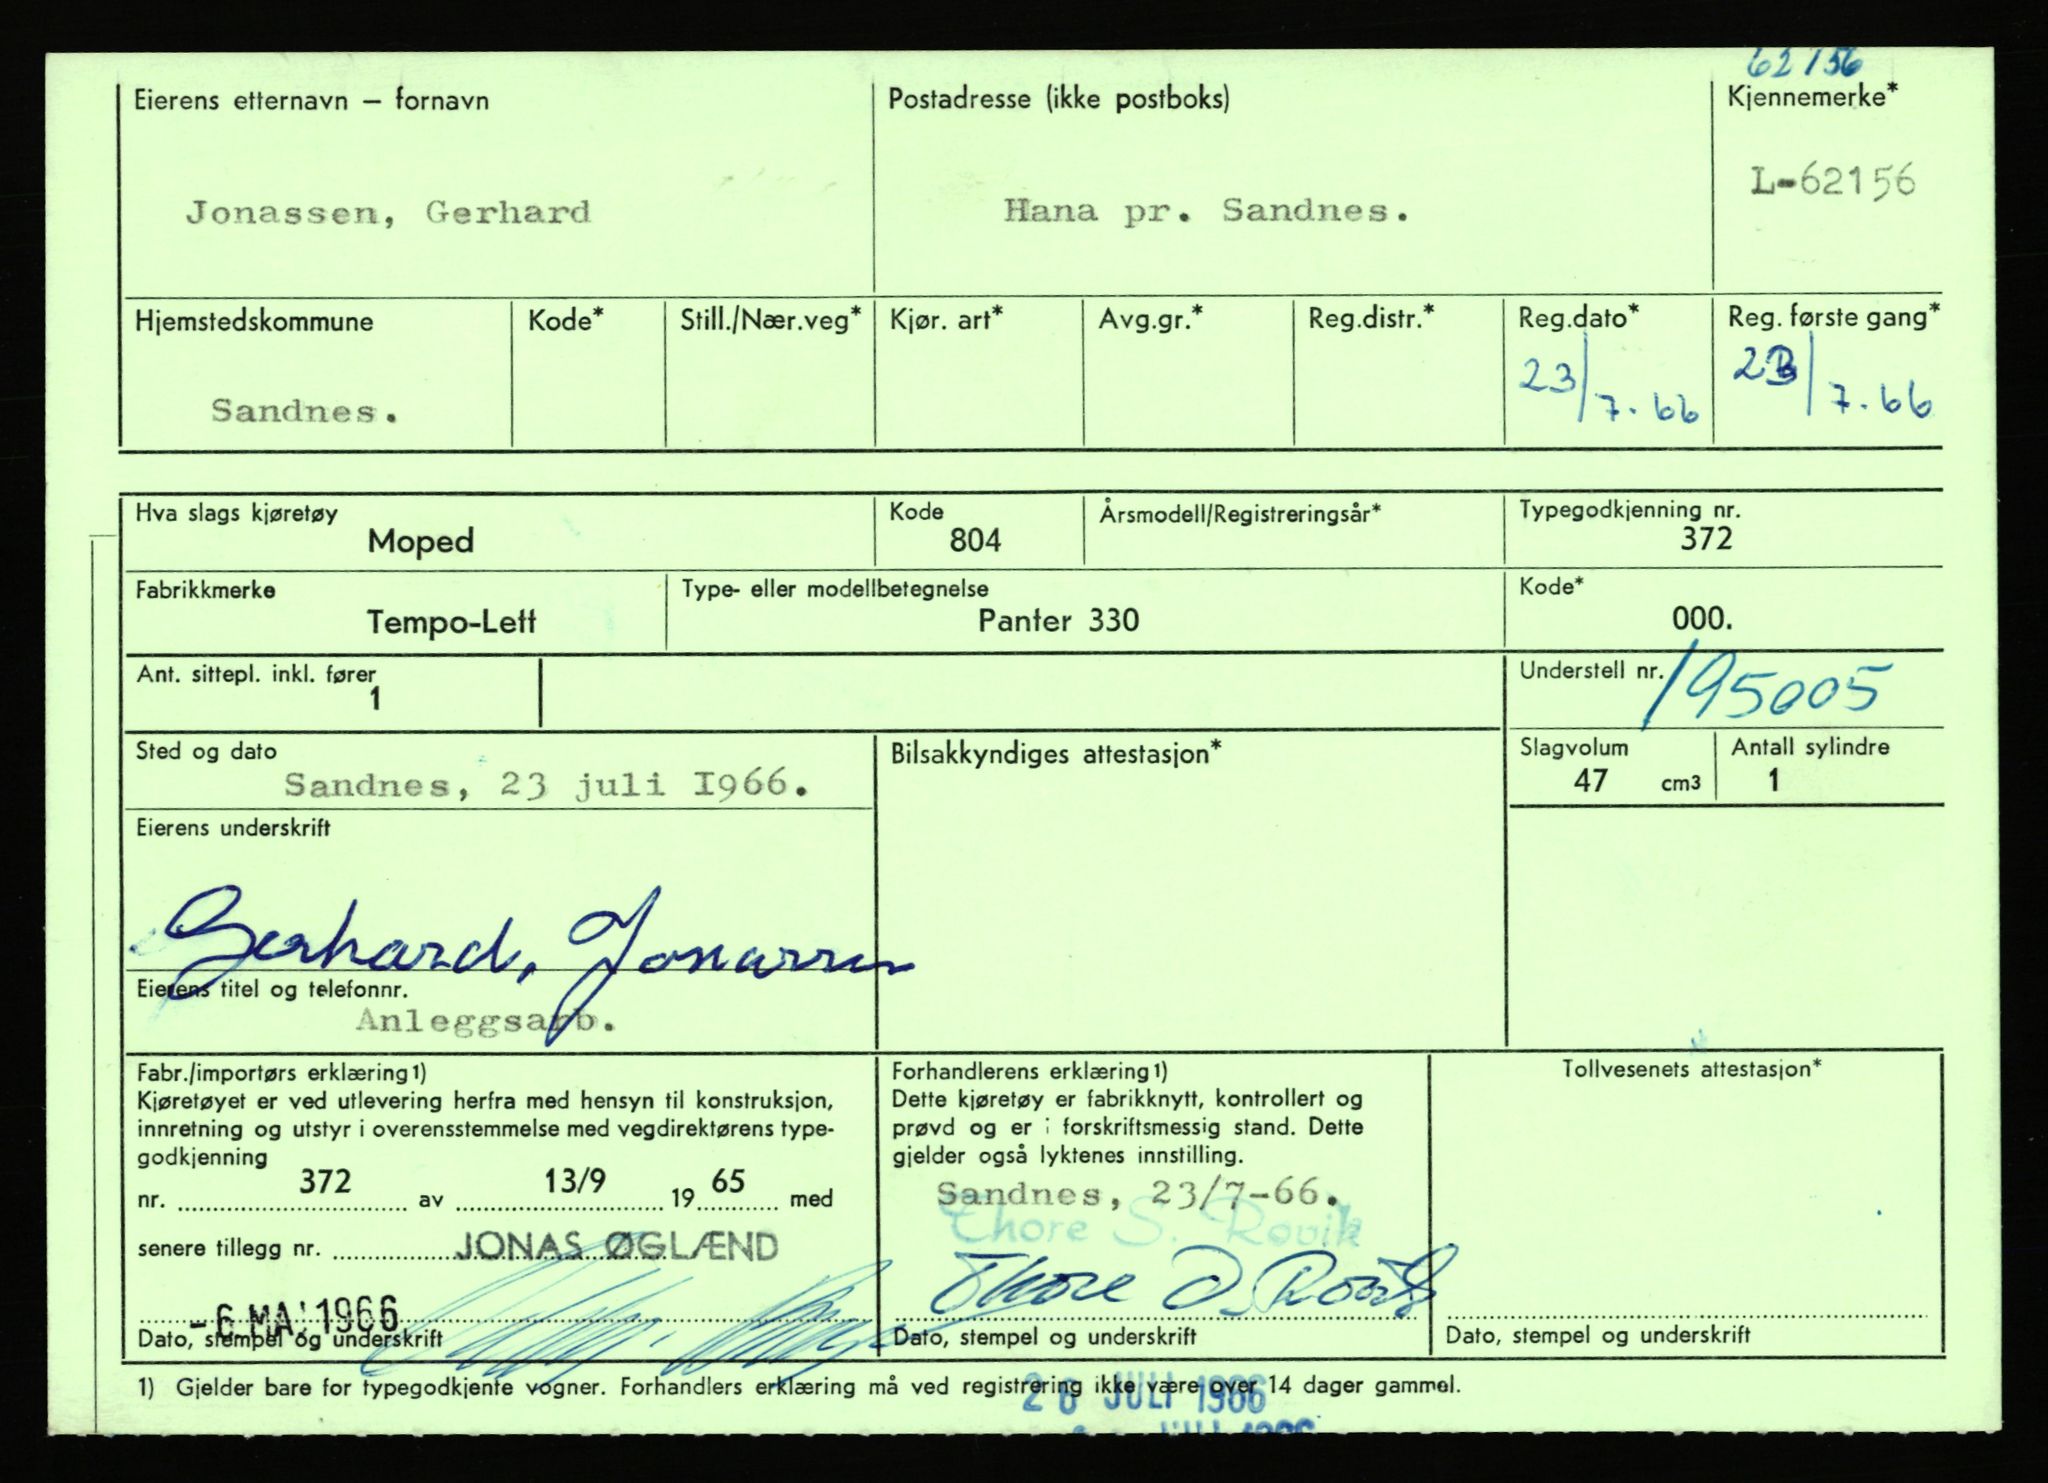 62156
Eierens etternavn – fornavn
Postadresse (ikke postboks)
Kjennemerke*
Jonassen, Gerhard
Hana pr. Sandnes.
L-62156
Hjemstedskommune
Kode*
Still./Nær.veg*
Kjør. art*
Avg.gr.*
Reg.distr.*
Reg.dato*
Reg. første gang*
Sandnes.
23/7.66
23/7.66
Hva slags kjøretøy
Moped
Kode
804
Årsmodell/Registreringsår*
Typegodkjenning nr.
372
Fabrikkmerke
Tempo-Lett
Type- eller modellbetegnelse
Panter 330
Kode*
000.
Ant. sittepl. inkl. fører
1
Understell nr.
195005
Sted og dato
Sandnes, 23 juli I966.
Bilsakkyndiges attestasjon*
Slagvolum
47 cm3
Antall sylindre
1
Eierens underskrift
Gerhard, Jonassen
Eierens titel og telefonnr.
Anleggsarb.
Fabr./importørs erklæring1)
Kjøretøyet er ved utlevering herfra med hensyn til konstruksjon,
innretning og utstyr i overensstemmelse med vegdirektørens type-
godkjenning
nr. 372 av 13/9 1965 med
senere tillegg nr. JONAS ØGLÆND
-6 MAI 1966
Dato, stempel og underskrift
Forhandlerens erklæring1)
Dette kjøretøy er fabrikknytt, kontrollert og
prøvd og er i forskriftsmessig stand. Dette
gjelder også lyktenes innstilling.
Sandnes, 23/7-66.
Thore S. Rovik
Thore S. Rovik
Dato, stempel og underskrift
Tollvesenets attestasjon*
Dato, stempel og underskrift
1) Gjelder bare for typegodkjente vogner. Forhandlers erklæring må ved registrering ikke være over 14 dager gammel.
26 JULI 1966